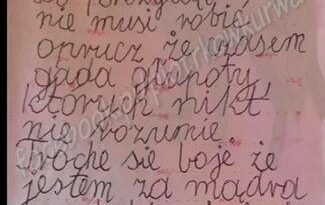 nie musi robić
oprucz że czasem
gada głupoty
których nikt
nie rozumie.
Trochę się boje że
jestem za mądra